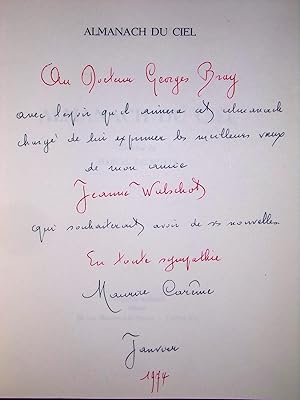 ALMANACH DU CIEL
Au Docteur Georges Bray
avec l'espoir qu'il aimera cet almanach
chargé de lui exprimer les meilleurs vœux
de mon amie
Jeannie Wulschot
qui souhaiterait avoir de ses nouvelles.
En toute sympathie
Maurice Carême
Janvier
1974